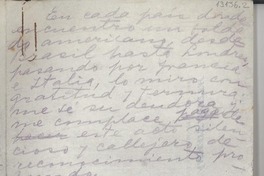 13136.2
En cada país donde
encuentro un solda
do americano, desde
Brasil hasta Londres
pasando por Francia
e Italia, lo miro con
gratitud y ternura;
me sé ser deudora y
me complace de
este acto silen
cioso y callejero, de
reconocimiento pro